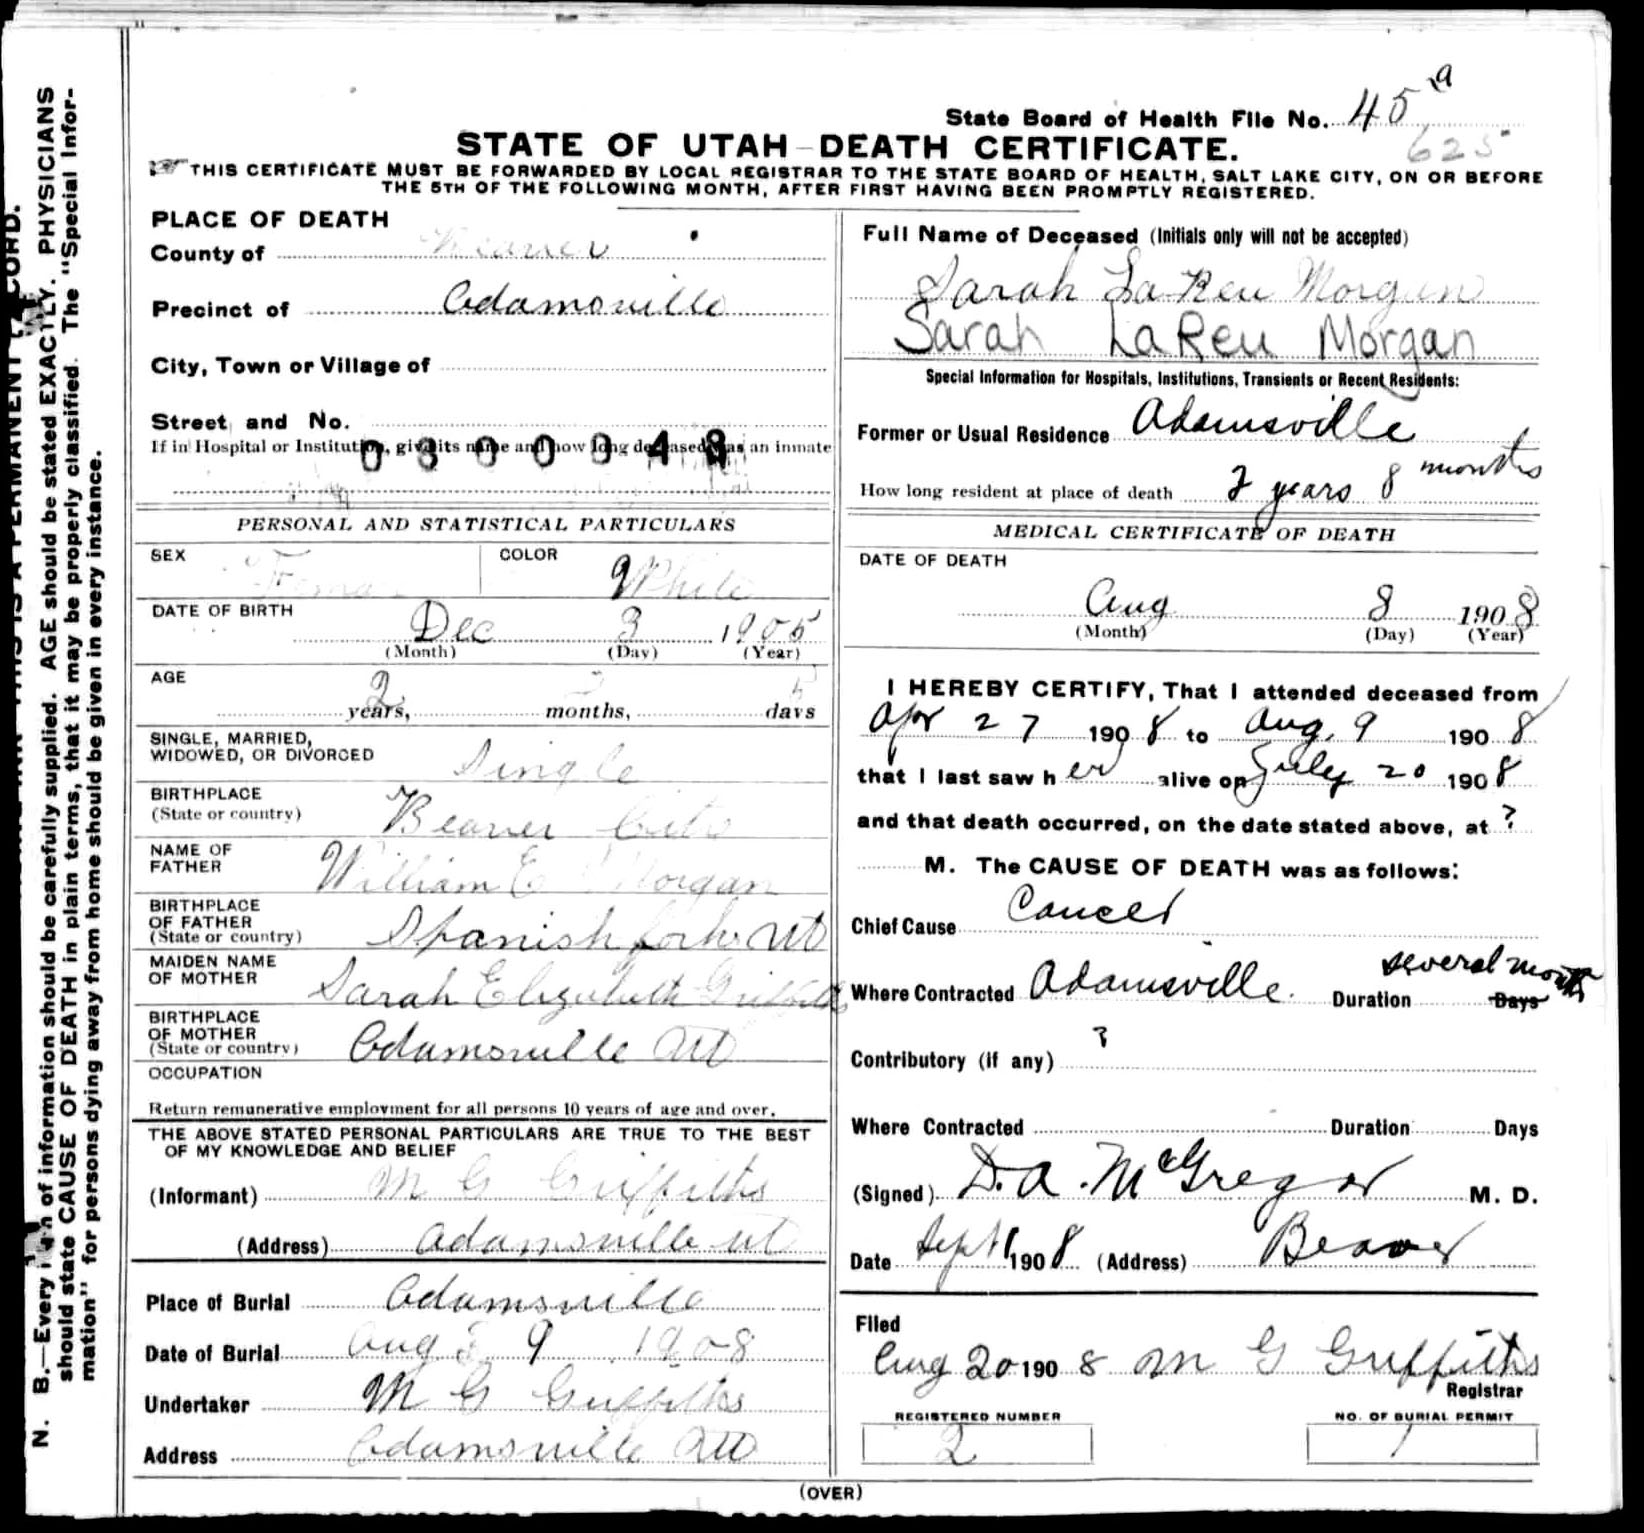 N. B.—Every item of information should be carefully supplied. AGE should be stated EXACTLY. PHYSICIANS
should state CAUSE OF DEATH in plain terms, that it may be properly classified. The "Special Infor-
mation" for persons dying away from home should be given in every instance.
State Board of Health File No. 45 a
625
STATE OF UTAH—DEATH CERTIFICATE.
THIS CERTIFICATE MUST BE FORWARDED BY LOCAL REGISTRAR TO THE STATE BOARD OF HEALTH, SALT LAKE CITY, ON OR BEFORE
THE 5TH OF THE FOLLOWING MONTH, AFTER FIRST HAVING BEEN PROMPTLY REGISTERED.
PLACE OF DEATH
County of Beaver
Precinct of Adamsville
City, Town or Village of
Street and No.
If in Hospital or Institution, give its name and how long deceased was an inmate
PERSONAL AND STATISTICAL PARTICULARS
SEX
COLOR
White
DATE OF BIRTH
Dec 3 1905
(Month) (Day) (Year)
AGE
2 years, months, 5 days
SINGLE, MARRIED,
WIDOWED, OR DIVORCED
Single
BIRTHPLACE
(State or country)
Beaver City
NAME OF
FATHER
William E Morgan
BIRTHPLACE
OF FATHER
(State or country)
Spanish fork Ut
MAIDEN NAME
OF MOTHER
Sarah Elizabeth Griffiths
BIRTHPLACE
OF MOTHER
(State or country)
Adamsville Ut
OCCUPATION
Return remunerative employment for all persons 10 years of age and over.
THE ABOVE STATED PERSONAL PARTICULARS ARE TRUE TO THE BEST
OF MY KNOWLEDGE AND BELIEF
(Informant) M G Griffiths
(Address) Adamsville Ut
Place of Burial Adamsville
Date of Burial Aug 9 1908
Undertaker M G Griffiths
Address Adamsville Ut
Full Name of Deceased (Initials only will not be accepted)
Sarah LaReu Morgan
Sarah LaReu Morgan
Special Information for Hospitals, Institutions, Transients or Recent Residents:
Former or Usual Residence Adamsville
How long resident at place of death 2 years 8 months
MEDICAL CERTIFICATE OF DEATH
DATE OF DEATH
Aug 8 1908
(Month) (Day) (Year)
I HEREBY CERTIFY, That I attended deceased from
Apr 27 1908 to Aug. 9 1908
that I last saw her alive on July 20 1908
and that death occurred, on the date stated above, at ?
M. The CAUSE OF DEATH was as follows:
Chief Cause Cancer
Where Contracted Adamsville. Duration several months Days
Contributory (if any) ?
Where Contracted Duration Days
(Signed) D. A. McGregor M. D.
Date Sept 1 1908 (Address) Beaver
Filed
Aug 20 1908 M G Griffiths
Registrar
REGISTERED NUMBER
2
NO. OF BURIAL PERMIT
1
(OVER)